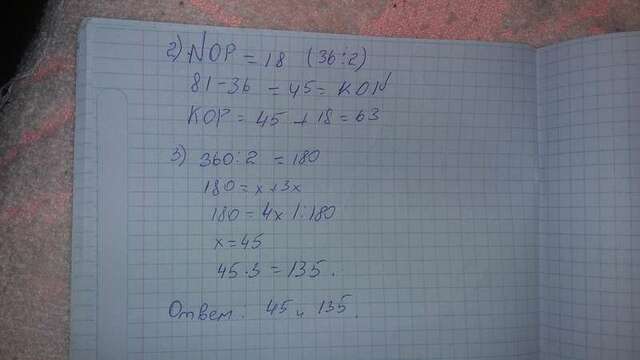 2) NOP = 18 (36:2)
81-36 = 45 = KON
KOP = 45 + 18 = 63
3) 360:2 = 180
180 = x + 3x
180 = 4x |:180
x = 45
45·3 = 135.
Ответ: 45 и 135.